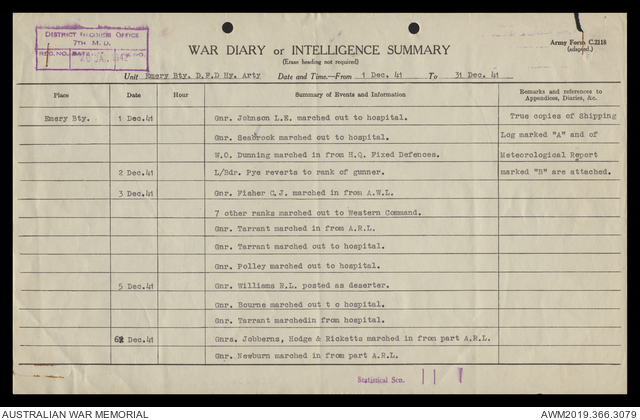 DISTRICT RECORDS OFFICE
7TH M.D.
WAR DIARY or INTELLIGENCE SUMMARY
(Erase heading not required)
Army Form C.2118
(adapted.)
Unit Emery Bty. D.F.D Hy. Arty Date and Time.—From 1 Dec. 41 To 31 Dec. 41
Place Date Hour Summary of Events and Information Remarks and references to Appendices, Diaries, &c.
Emery Bty. 1 Dec.41 Gnr. Johnson L.E. marched out to hospital. True copies of Shipping
Gnr. Seabrook marched out to hospital. Log marked "A" and of
W.O. Dunning marched in from H.Q. Fixed Defences. Meteorological Report
2 Dec.41 L/Bdr. Pye reverts to rank of gunner. marked "B" are attached.
3 Dec.41 Gnr. Fisher C.J. marched in from A.W.L.
7 other ranks marched out to Western Command.
Gnr. Tarrant marched in from A.R.L.
Gnr. Tarrant marched out to hospital.
Gnr. Polley marched out to hospital.
5 Dec.41 Gnr. Williams R.L. posted as deserter.
Gnr. Bourne marched out t o hospital.
Gnr. Tarrant marchedin from hospital.
6 Dec.41 Gnrs. Jobberns, Hodge & Ricketts marched in from part A.R.L.
Gnr. Newburn marched in from part A.R.L.
Statistical Sec.
AUSTRALIAN WAR MEMORIAL
AWM2019.366.3079